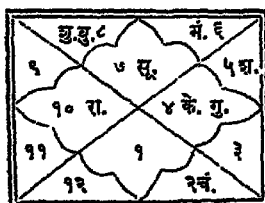 शु. बु. ८ मं. ६
९ ७ सू. ५ श.
१० रा. ४ के. गु.
११ १ ३
१२ २चं.